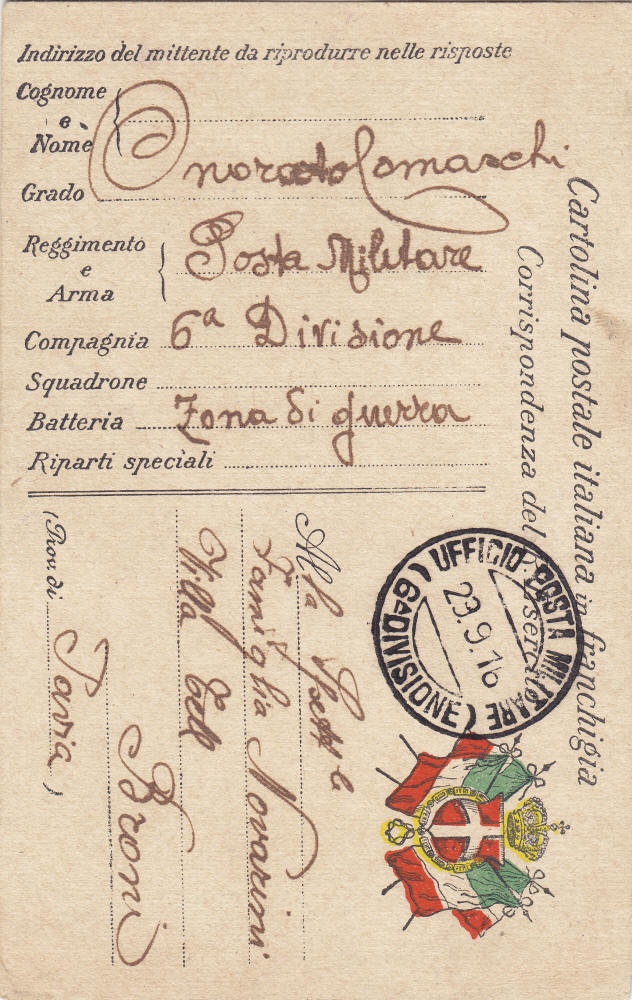 Indirizzo del mittente da riprodurre nelle risposte
Cognome
e
Nome
Grado
Reggimento
e
Arma
Posta Militare
Compagnia 6ª Divisione
Squadrone
Batteria Zona di guerra
Riparti speciali
Cartolina postale italiana in franchigia
Corrispondenza del R. Esercito
UFFICIO POSTA MILITARE
(6ª DIVISIONE)
23.9.16
Alla
Famiglia Novarini
Villa
Broni
(Prov. di Pavia)